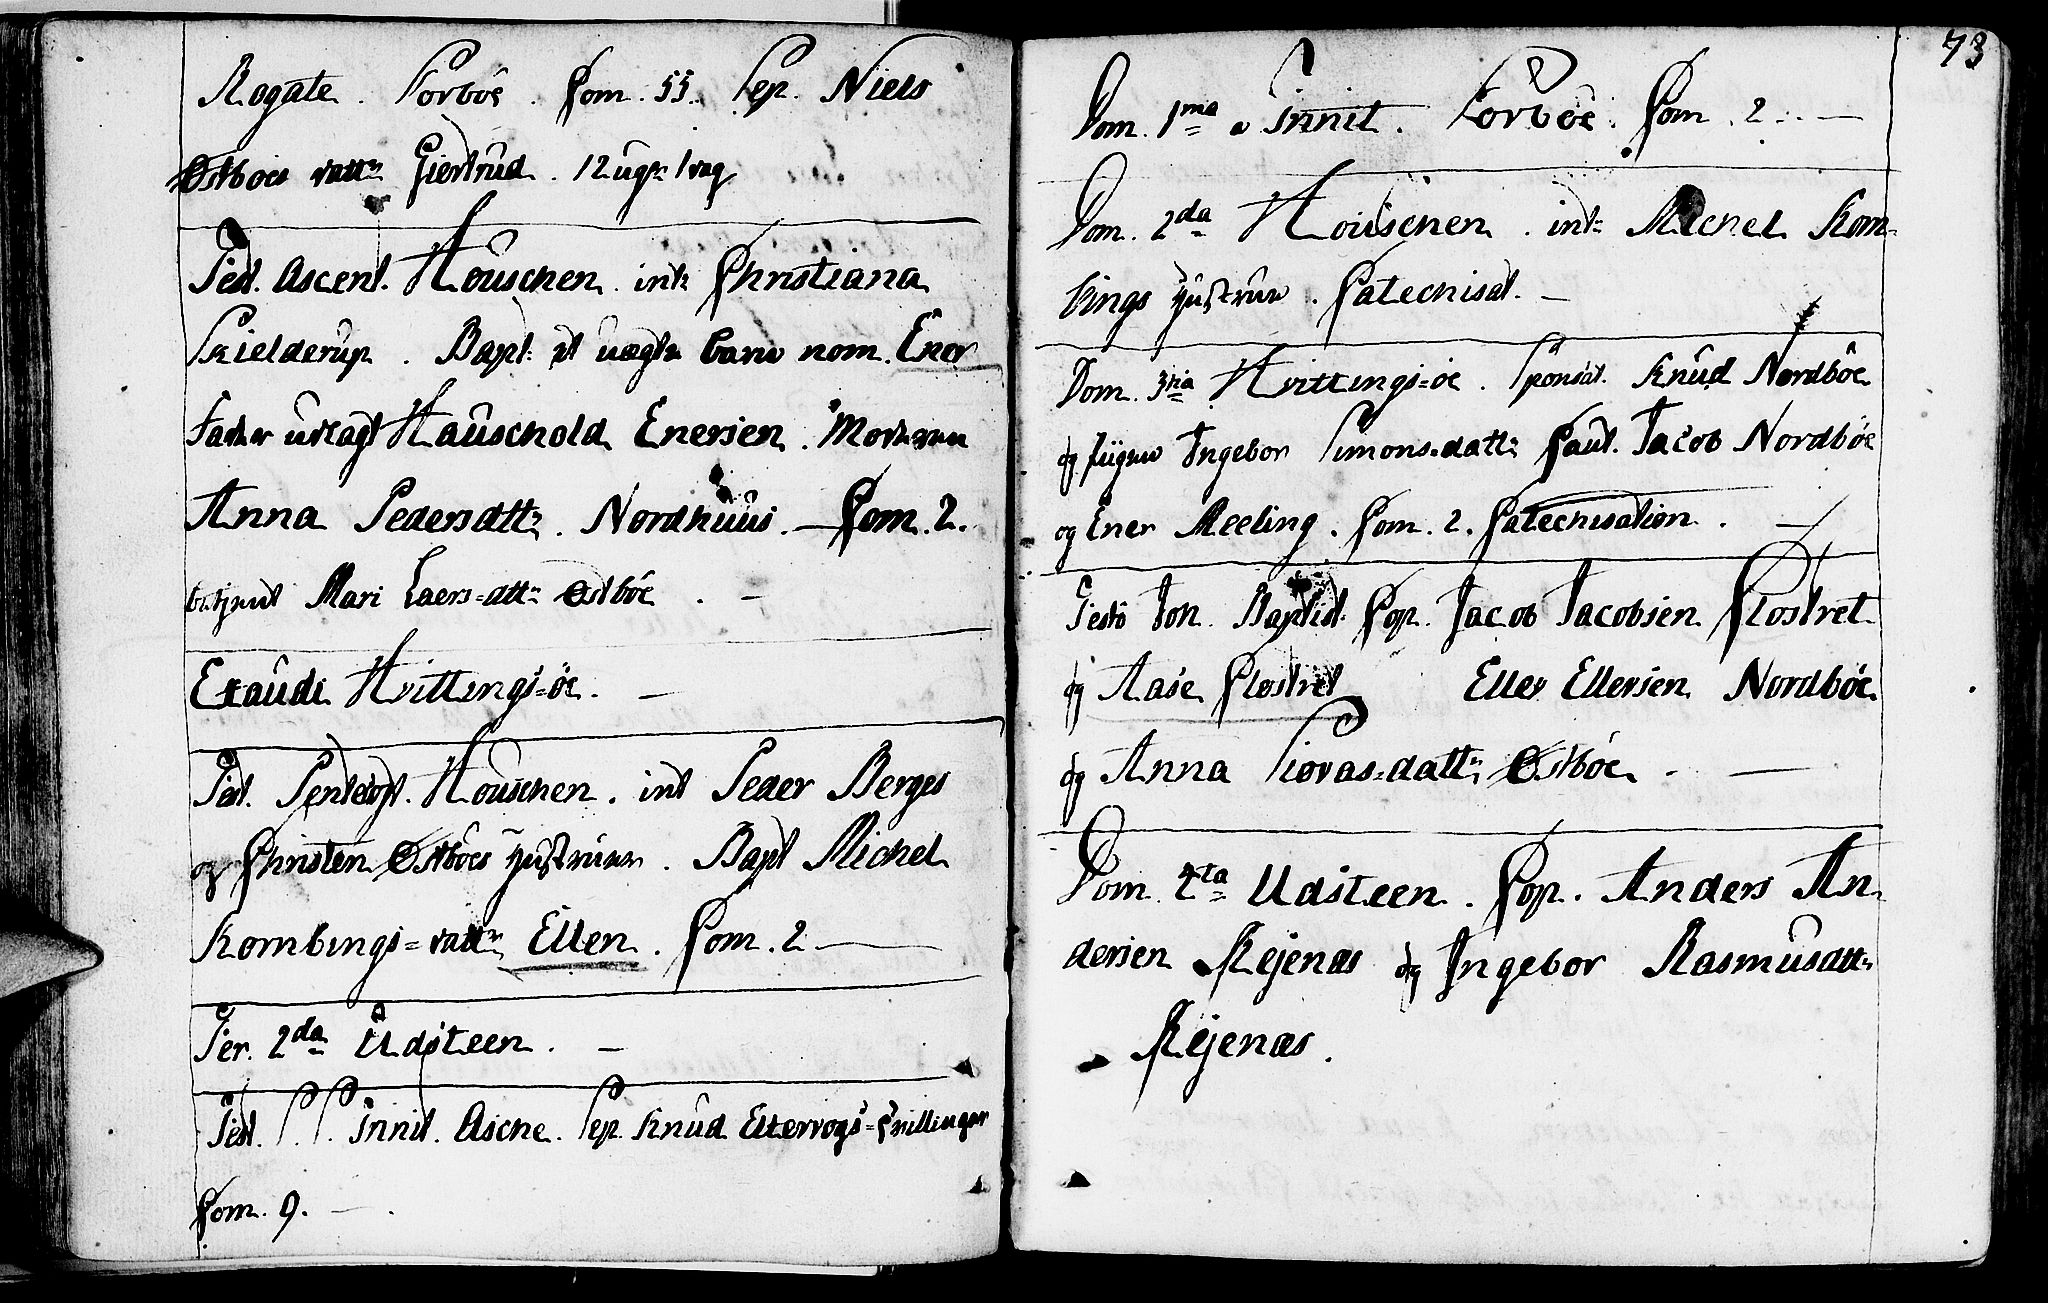 Rogate. Sörböe. Com. 55. Sep. Niels
Østböes datt: Giertrud. 12 ug: 1 dag
Fest. Ascent. Houschen. int: Christiana
Skielderup. Bapt: et uægte barn nom. Ener
Fader udlagt Hauschold Enersen. Moderen
Anna Pedersdtt:. Nordhuus. — Com. 2.
betjent Mari Laers=att: Østböe. —
Exaudi Hvittings=öe. —
Fest. Pentekost. Houschen. int Peder Berges
og Christen Østböes hustruer. Bapt Michel
Kornbings=datt: Ellen. Com. 2 —
Fer. 2da Udsteen. —
Fest. S. S. Trinit. Asche. Sep. Knud Eltervogs=tvillinger
Com. 9. —
73
Dom. 1ma a Trinit. Sörböe. Com. 2. —
Dom. 2da Houschen. int: Michel Korn-
bings hustrue. Catechisat. —
Dom. 3tia Hvittings=öe. Sponsat. Knud Nordböe
og pigen Ingebor Simons=datt: Caut. Jacob Nordböe
og Ener Meeling. Com. 2. Catechisation. —
Festo Joh. Baptist. Cop. Jacob Jacobsen Clostret
og Aase Clostret Eller Ellersen Nordböe
og Anna Siovas=datt: Østböe. —
Dom. 4ta Udsteen. Cop. Anders An-
dersen Rejenæs og Ingebor Rasmusdatt:
Rejenæs.